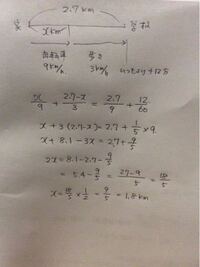 2.7 km
家 学校
x km
自転車 歩き
9km/h 3km/h いつもより+12分
x/9 + 2.7-x/3 = 2.7/9 + 12/60
x + 3(2.7-x) = 2.7 + 1/5 × 9
x + 8.1 - 3x = 2.7 + 9/5
2x = 8.1 - 2.7 - 9/5
= 5.4 - 9/5 = 27-9/5 = 18/5
x = 18/5 × 1/2 = 9/5 = 1.8 km